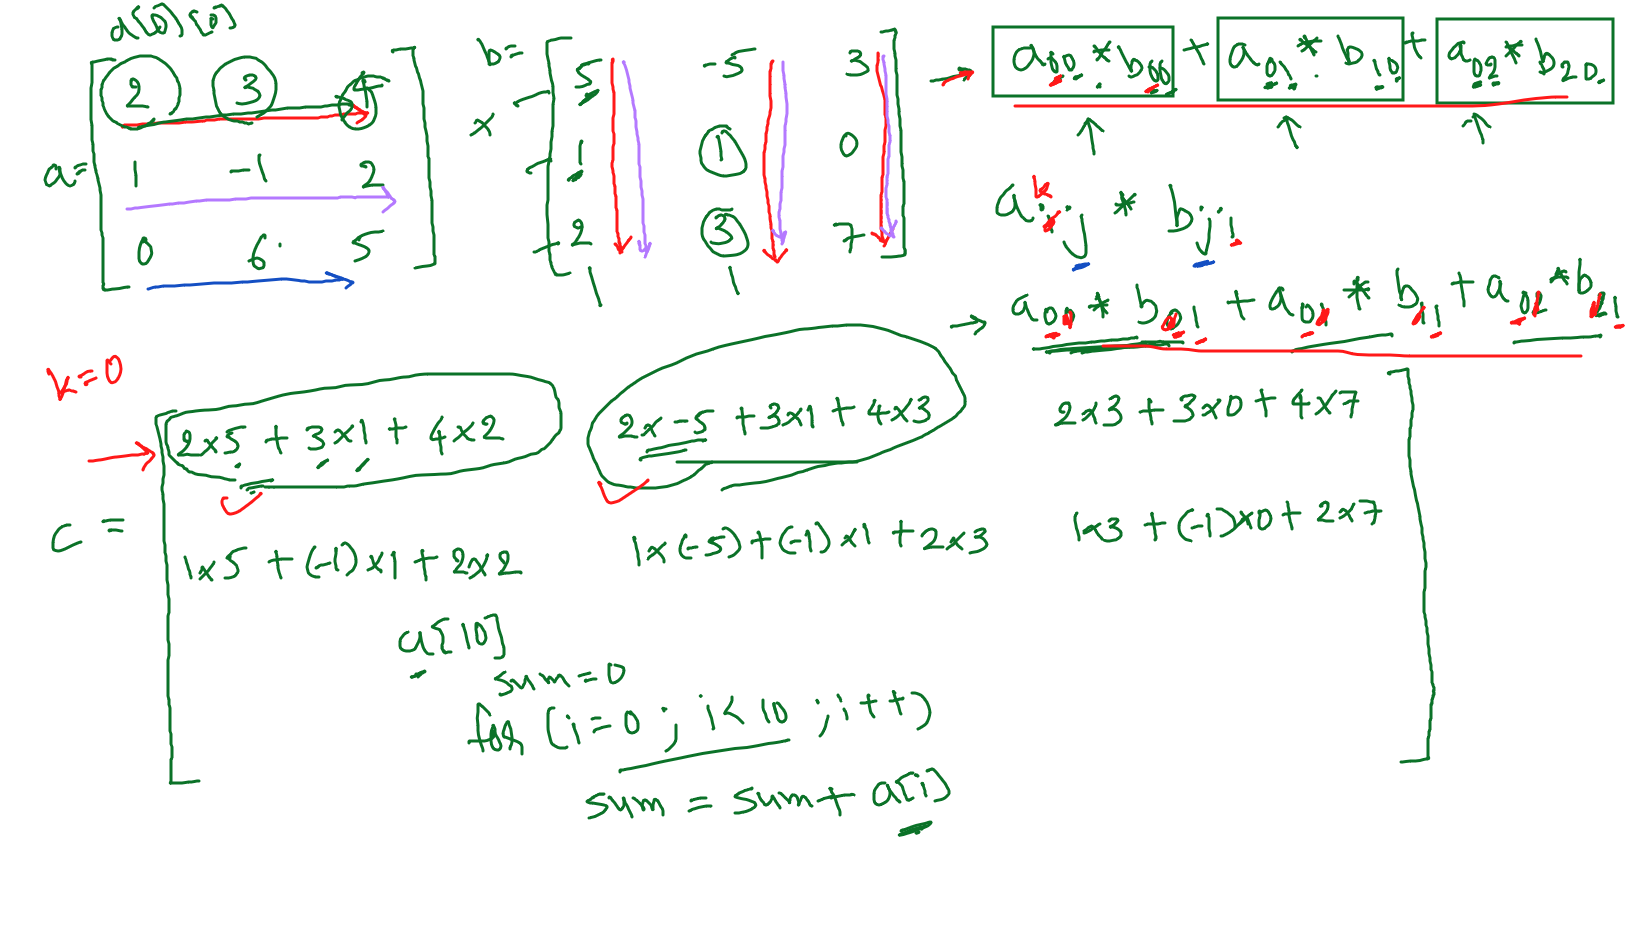 a[0][0]
a = [ 2 3 4
1 -1 2
0 6 5 ]
x
b = [ 5 -5 3
1 1 0
2 3 7 ]
a00 * b00 + a01 * b10 + a02 * b20
k
aij * bji
a00 * b01 + a01 * b11 + a02 * b21
k=0
c =
2x5 + 3x1 + 4x2 2x-5 + 3x1 + 4x3 2x3 + 3x0 + 4x7
1x5 + (-1)x1 + 2x2 1x(-5) + (-1)x1 + 2x3 1x3 + (-1)x0 + 2x7
a[10]
sum=0
for (i=0 ; i<10 ; i++)
sum = sum + a[i]